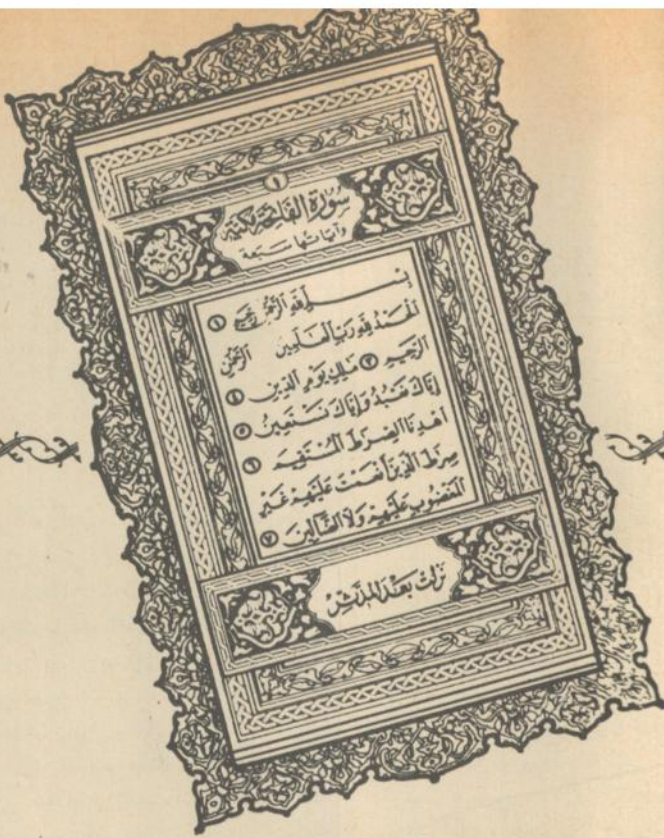 ١
سورة الفاتحة مكية
وآياتها سبعة
بسم الله الرحمن الرحيم ١
الحمد لله رب العالمين الرحمن
الرحيم ٣ ملك يوم الدين ٤
إياك نعبد وإياك نستعين ٥
اهدنا الصرط المستقيم ٦
صرط الذين أنعمت عليهم غير
المغضوب عليهم ولا الضالين ٧
نزلت بعد المدثر